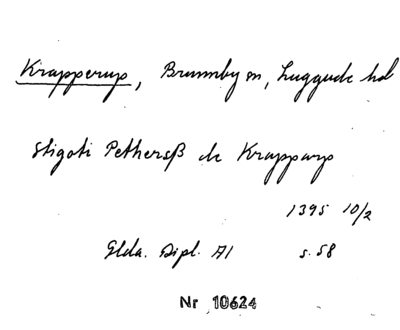 Krapperup, Brunnby sn, Luggude hd
Stigoti Pethersß de Krapparp
1395 10/2
Glda. Dipl. A1 s. 58
Nr 10624